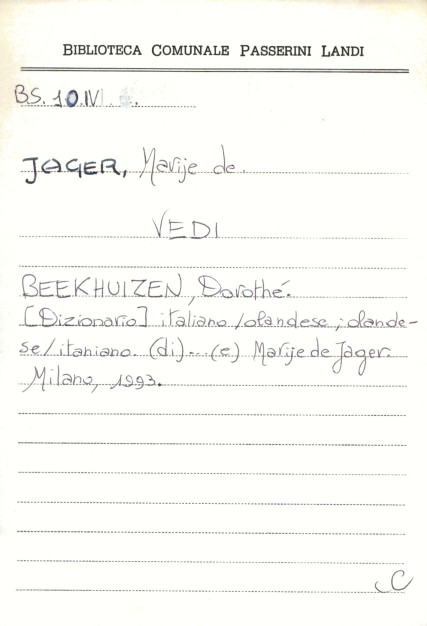 BIBLIOTECA COMUNALE PASSERINI LANDI
B.S. 10.IV
JAGER, Marije de.
VEDI
BEEKHUIZEN, Dorothé.
[Dizionario] italiano/olandese; olande-
se/itaniano. (di)... (e) Marije de Jager.
Milano, 1993.
C